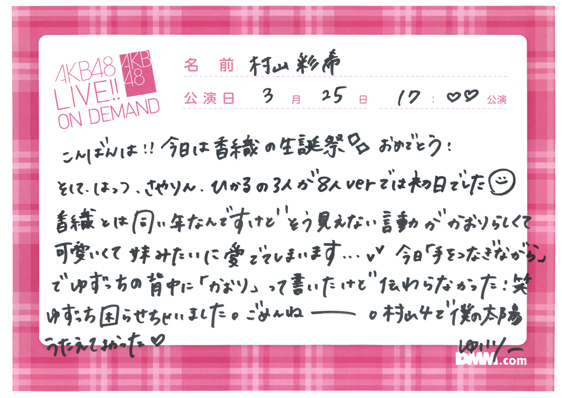 AKB48
LIVE!!
ON DEMAND
AKB
48
名前 村山彩希
公演日 3月25日 17:♡♡公演
こんばんは!!今日は香織の生誕祭 おめでとう!
そして、はっつ、さやりん、ひかるの3人が8人verでは初日でした
香織とは同い年なんですけどそう見えない言動がかおりらしくて
可愛いくて妹みたいに愛でてしまいます…今日「手をつなぎながら」
でゆずっちの背中に「かおり」って書いたけど伝わらなかった!笑
ゆずっち困らせちゃいました。ごめんねー。村山4で僕の太陽
うたえてよかった♡ ゆいりー
DMM.com